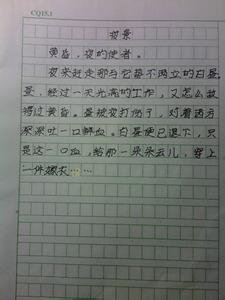 CQ15.1
夜景
黄昏，夜的使者。
夜来赶走那与它势不两立的白昼。
昼，经过一天光病的工作，又怎么敌
得过黄昏。昼被夜打伤了，对着西方
深深吐一口鲜血。白昼便已退下，只
是这一口血，给那一朵朵云儿，穿上
一件嫁衣……